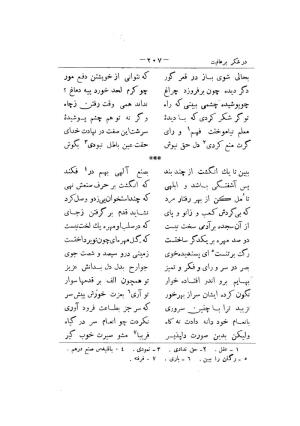 در شکر بر عافیت
— ۲۰۷ —
بحالی شوی باز در قعر گور
که نتوانی از خویشتن دفع مور
دگر دیده چون برفروزد چراغ
چو کرم لحد خورد پیه دماغ؟
چو پوشیده چشمی ببینی که راه
نداند همی وقت رفتن ز چاه
تو گر شکر کردی که با دیده‌ای
و گر نه تو هم چشم پوشیده‌ای
معلم نیاموختت فهم۱ و رای
سرشت این صفت در نهادت خدای
گرت منع کردی۲ دل حق نیوش
حقت عین باطل نبودی۳ بگوش
***
ببین تا یک انگشت از چند بند
بصنع الهی بهم در۴ فکند
پس آشفتگی باشد و ابلهی
که انگشت بر حرف صنعش نهی
تأمل کن از بهر رفتار مرد
که چند استخوان پی زد و وصل کرد
که بی گردش کعب و زانو و پای
نشاید قدم بر گرفتن ز جای
از آن سجده بر آدمی سخت نیست
که در صلب او مهره یک لخت نیست
دو صد مهره بر یکدگر ساختست
که گل مهره‌ای چون تو پرداختست
رگت بر تنست۵ ای پسندیده خوی
زمینی درو سیصد و شصت جوی
بصر در سر و رای و فکر و تمیز
جوارح بدل دل بدانش عزیز
بهایم برو اندر افتاده خوار
تو همچون الف بر قدمها سوار
نگون کرده ایشان سر از بهر خور
تو آری۶ بعزت خورش پیش سر
نزیبد ترا با چنین سروری
که سر جز بطاعت فرود آوری
بانعام خود دانه دادت نه کاه
نکردت چو انعام سر در گیاه
ولیکن بدین صورت دلپذیر
فریبا۷ مشو سیرت خوب گیر
۱ - عقل . ۲ - حق ندادی . ۳ - نمودی . ۴ - باقلیدس صنع درهم .
۵ - رگان را ببین . ۶ - یاری . ۷ - فرفته .